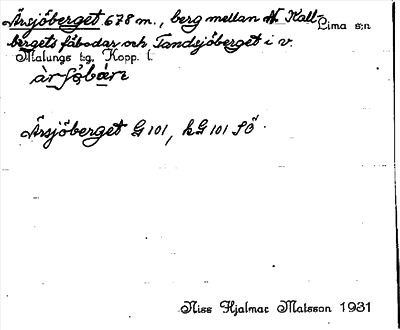 Ärsjöberget 678 m., berg mellan N. Kall-
Lima s:n
bergets fäbodar och Tandsjöberget i v.
Malungs tg. Kopp. l.
Ärsjöberget G 101, kG 101 SÖ
Niss Hjalmar Matsson 1931